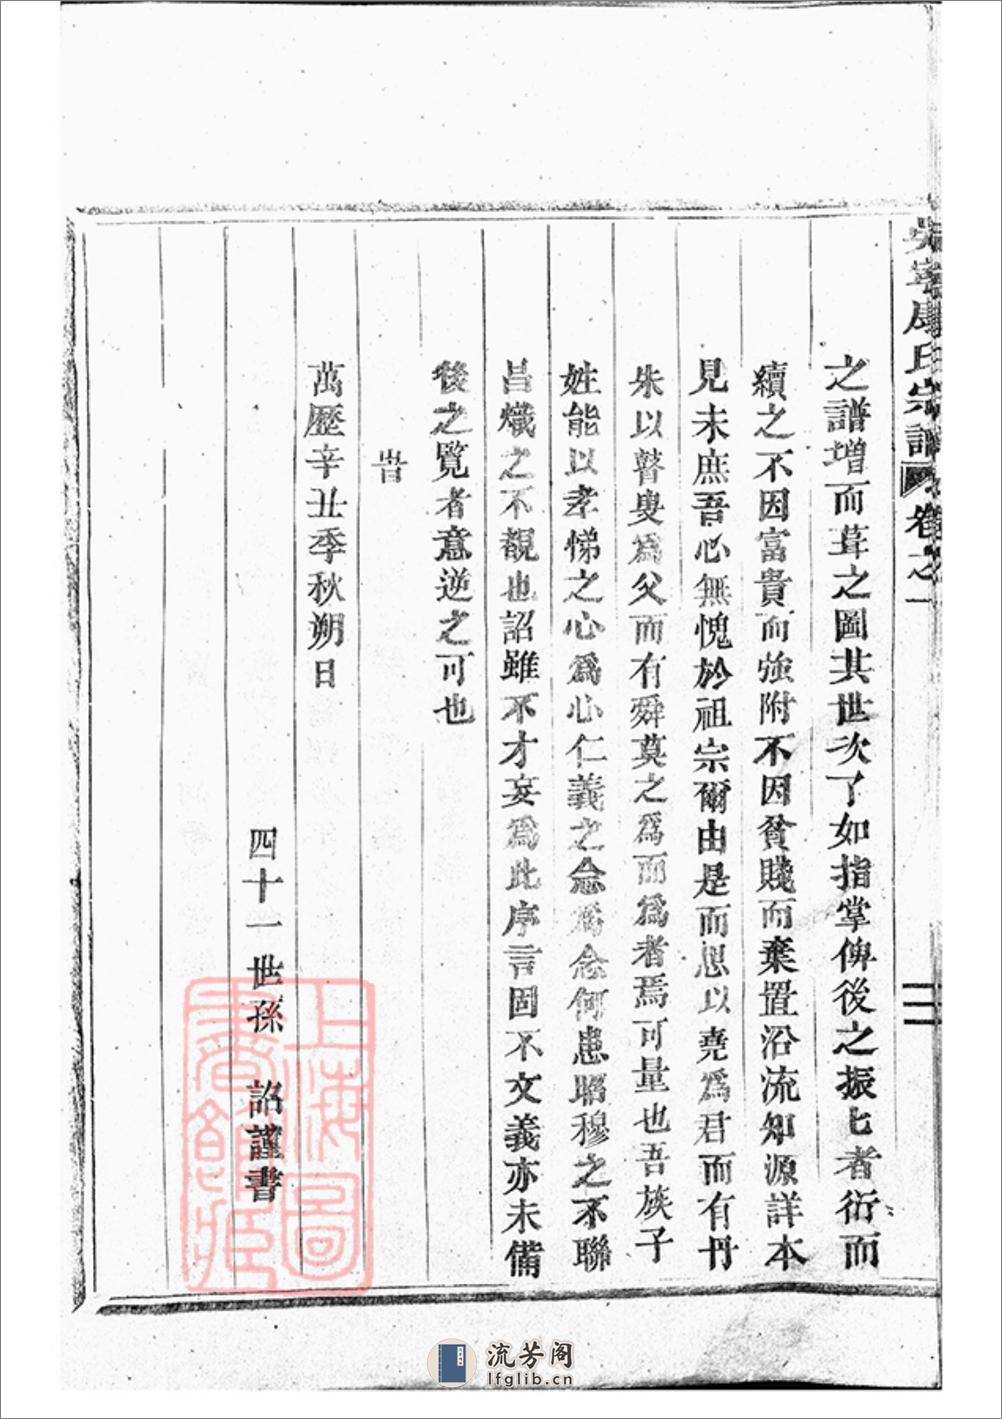 氏宗譜 卷之一
之譜增而葺之圖其世次了如指掌俾後之振七者衍而
續之不因富貴而強附不因貧賤而棄置沿流知源詳本
見末庶吾心無愧於祖宗爾由是而思以堯為君而有丹
朱以瞽叟為父而有舜莫之為而為者焉可量也吾族子
姓能以孝悌之心為心仁義之念為念何患昭穆之不聯
昌熾之不覩也詔雖不才妄為此序言固不文義亦未備
後之覽者意逆之可也
旹
萬歷辛丑季秋朔日
四十一世孫 詔謹書
上海圖
書館藏
流芳阁
lfglib.cn